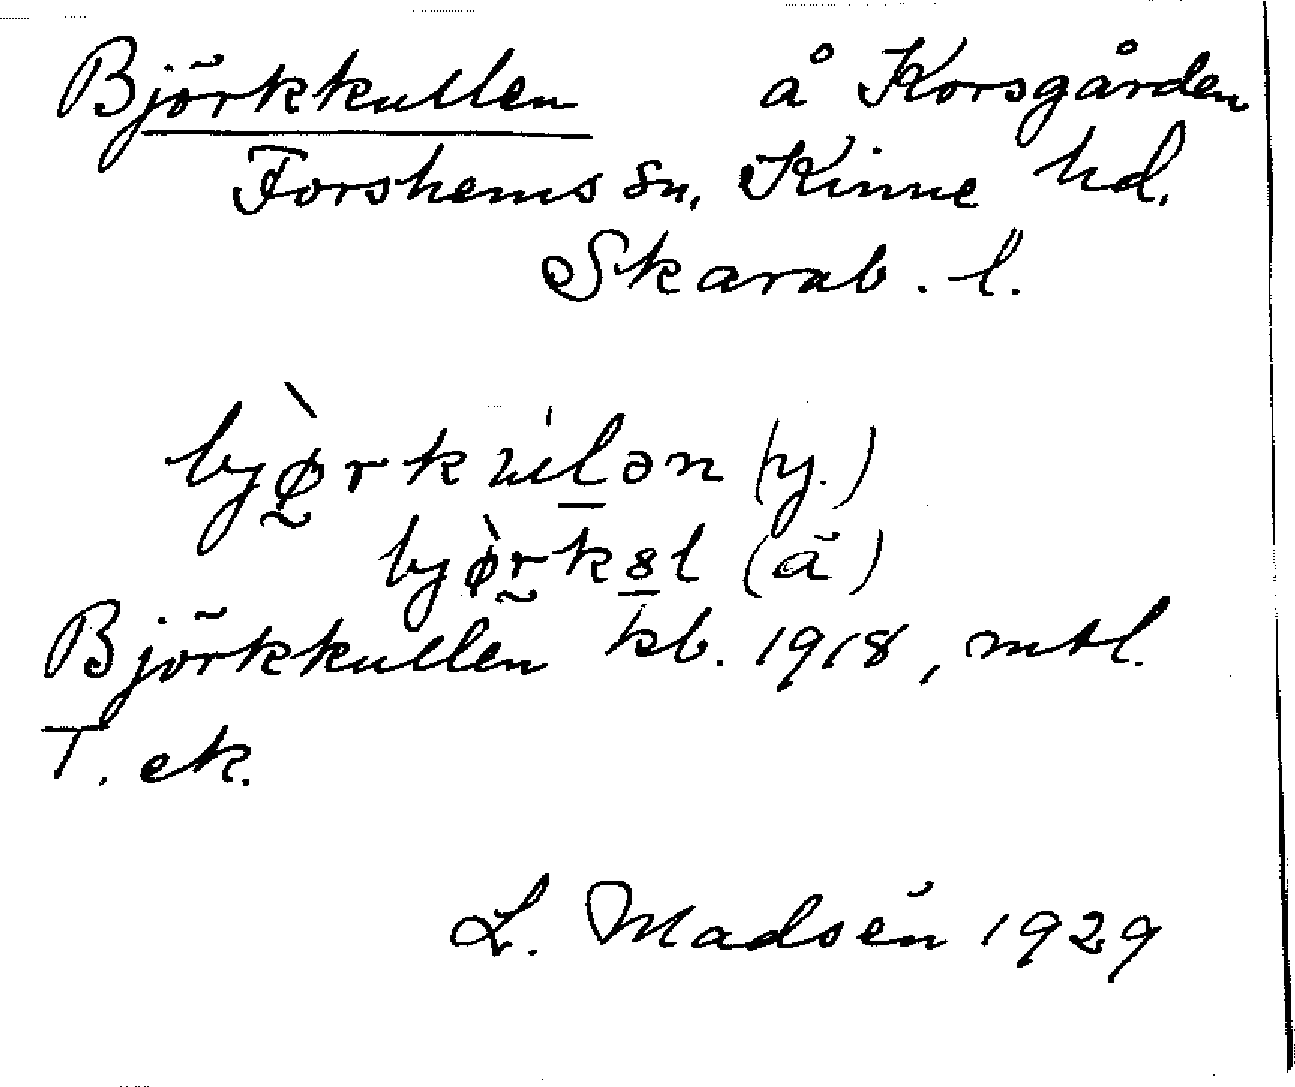 Björkkullen å Korsgården
Forshems sn, Kinne hd.
Skarab. l.
(yj.)
(ä)
Björkkullen kb. 1918, mtl.
T. ek.
L. Madsén 1929